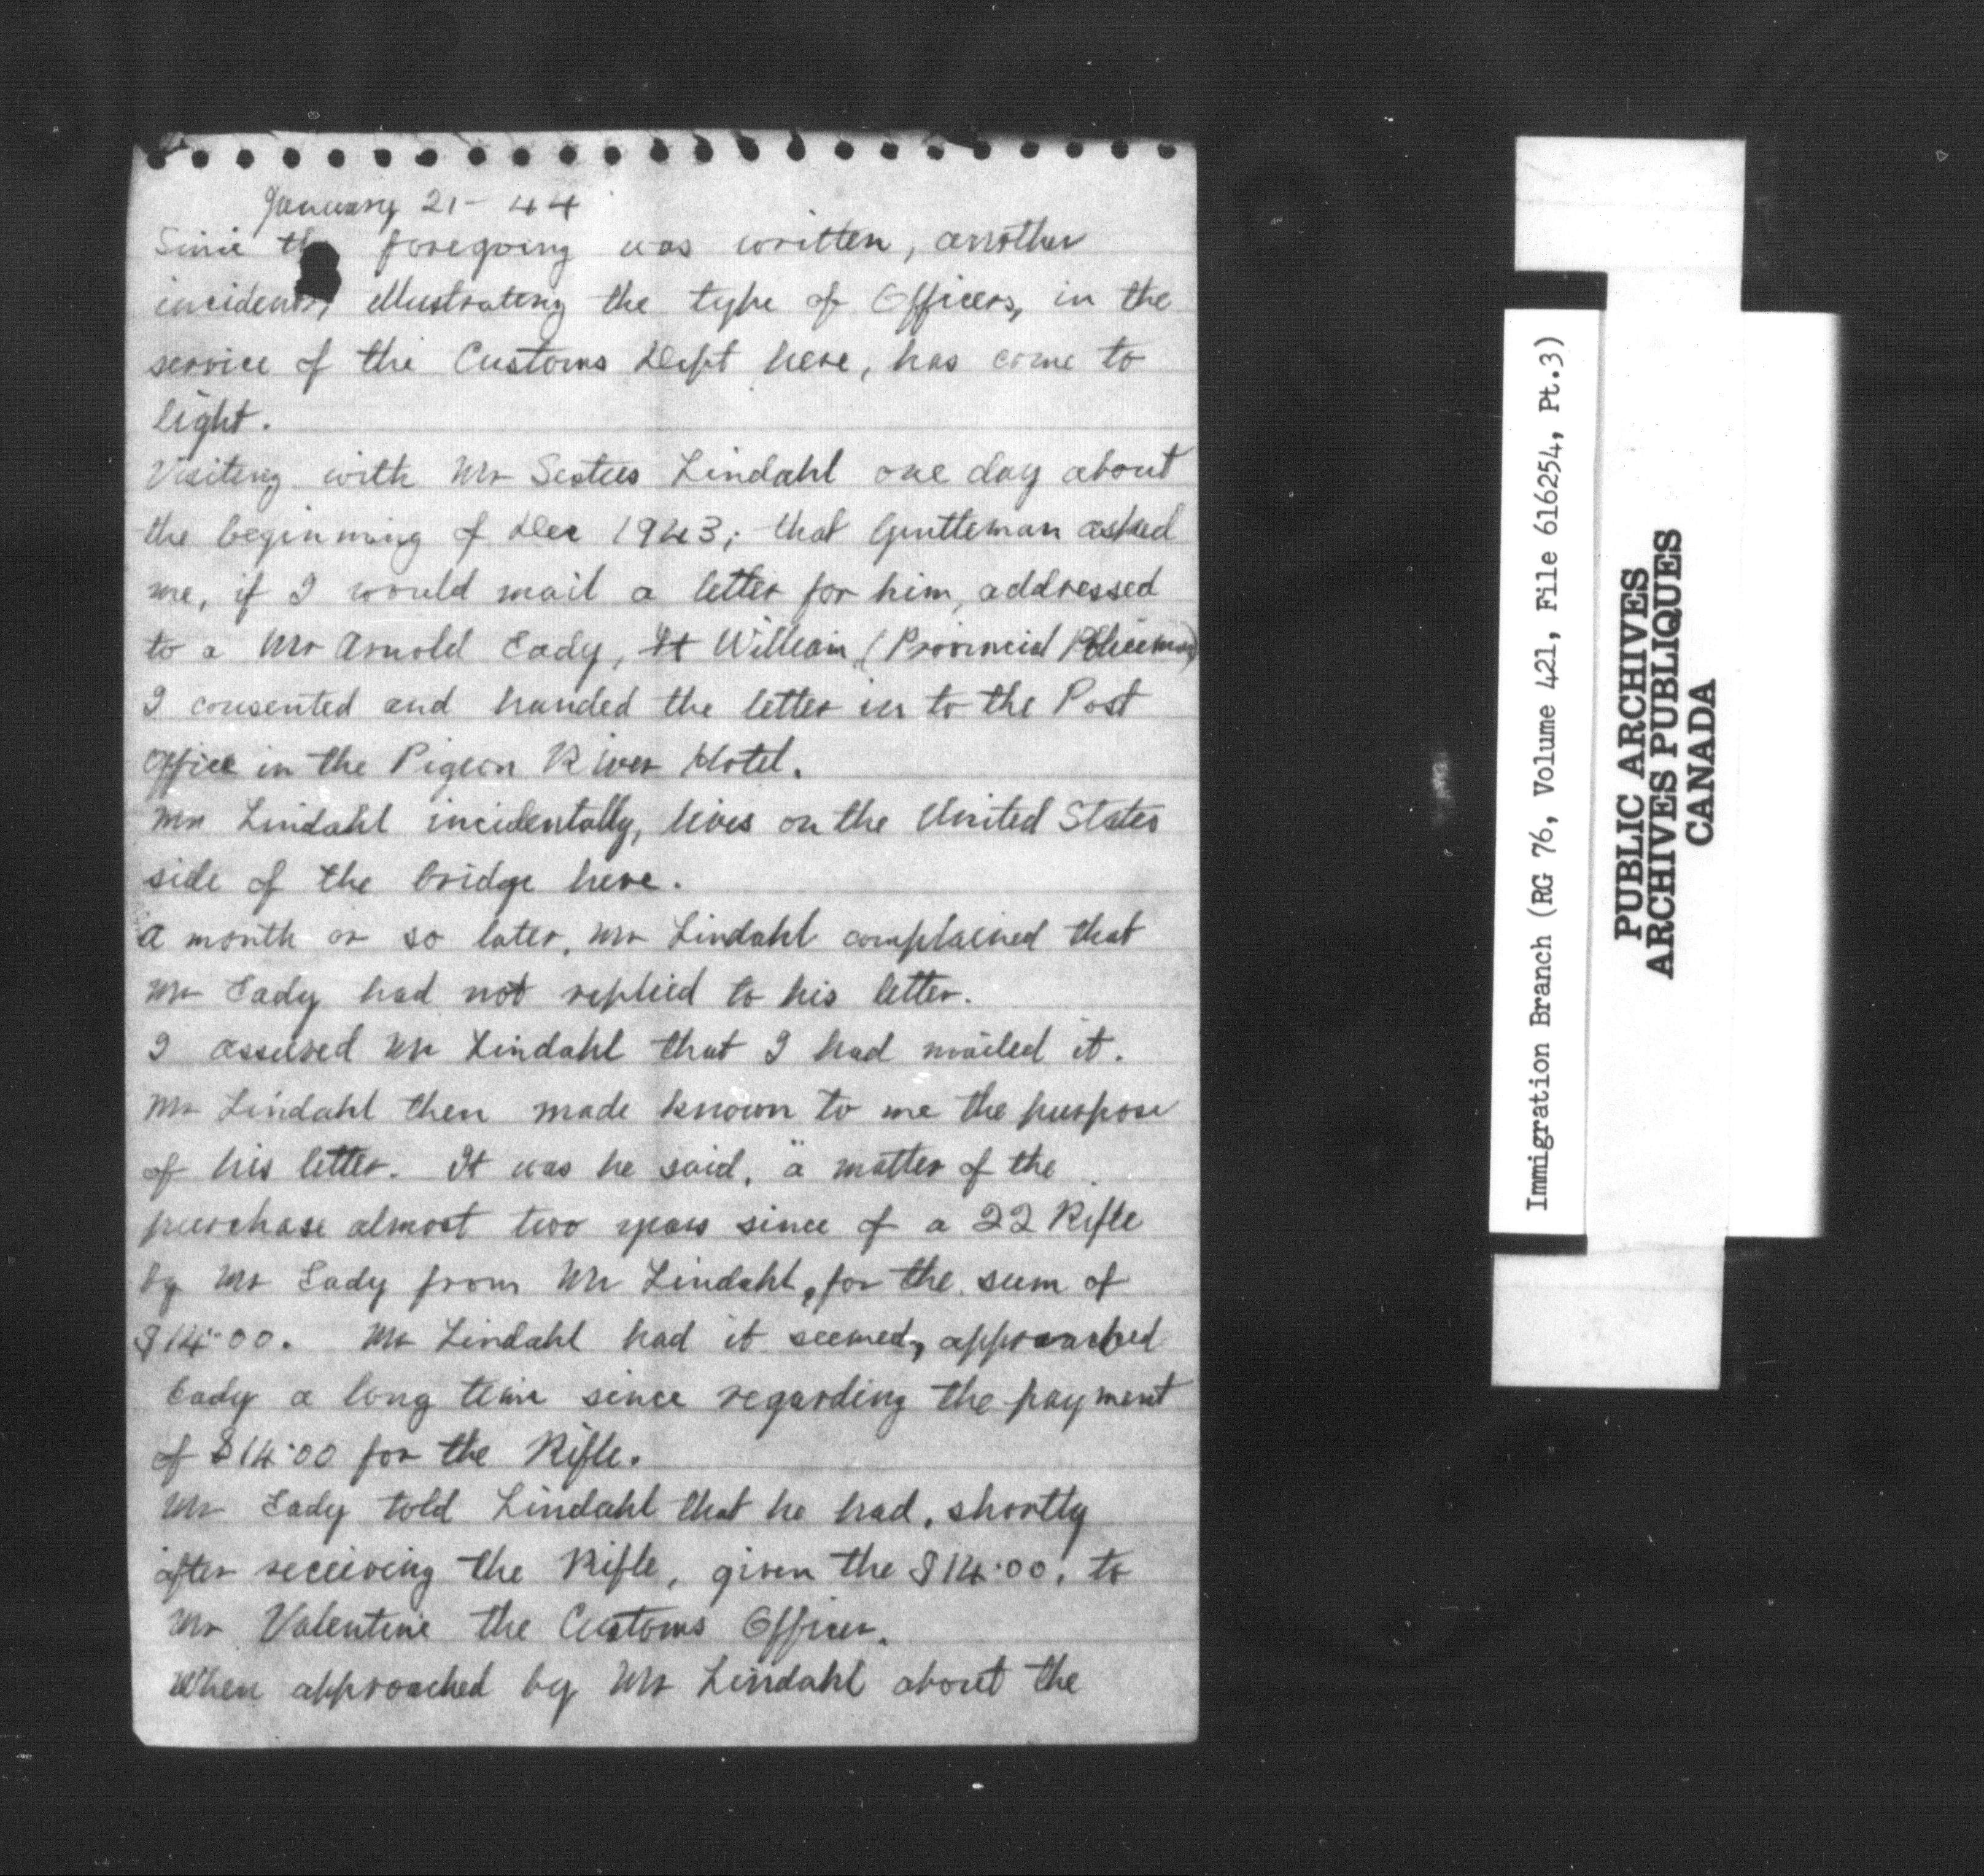 January 21 - 44
Since the foregoing was written, another
incident, illustrating the type of Officers, in the
service of the Customs Dept here, has come to
light.
Visiting with Mr Lindahl one day about
the beginning of Dec 1943; that Gentleman asked
me, if I would mail a letter for him, addressed
to a Mr Arnold Eady, Ft William (Provincial Policeman)
I consented and handed the letter in to the Post
Office in the Pigeon River Hotel.
Mr Lindahl incidentally, lives on the United States
side of the bridge here.
A month or so later, Mr Lindahl complained that
Mr Eady had not replied to his letter.
I assured Mr Lindahl that I had mailed it.
Mr Lindahl then made known to me the purpose
of his letter. It was he said, "a matter of the
purchase almost two years since of a 22 Rifle
by Mr Eady from Mr Lindahl, for the sum of
$14.00. Mr Lindahl had it seemed, approached
Eady a long time since regarding the payment
of $14.00 for the Rifle.
Mr Eady told Lindahl that he had, shortly
after receiving the Rifle, given the $14.00, to
Mr Valentine the Customs Officer.
When approached by Mr Lindahl about the
Immigration Branch (RG 76, Volume 421, File 616254, Pt.3)
PUBLIC ARCHIVES
ARCHIVES PUBLIQUES
CANADA